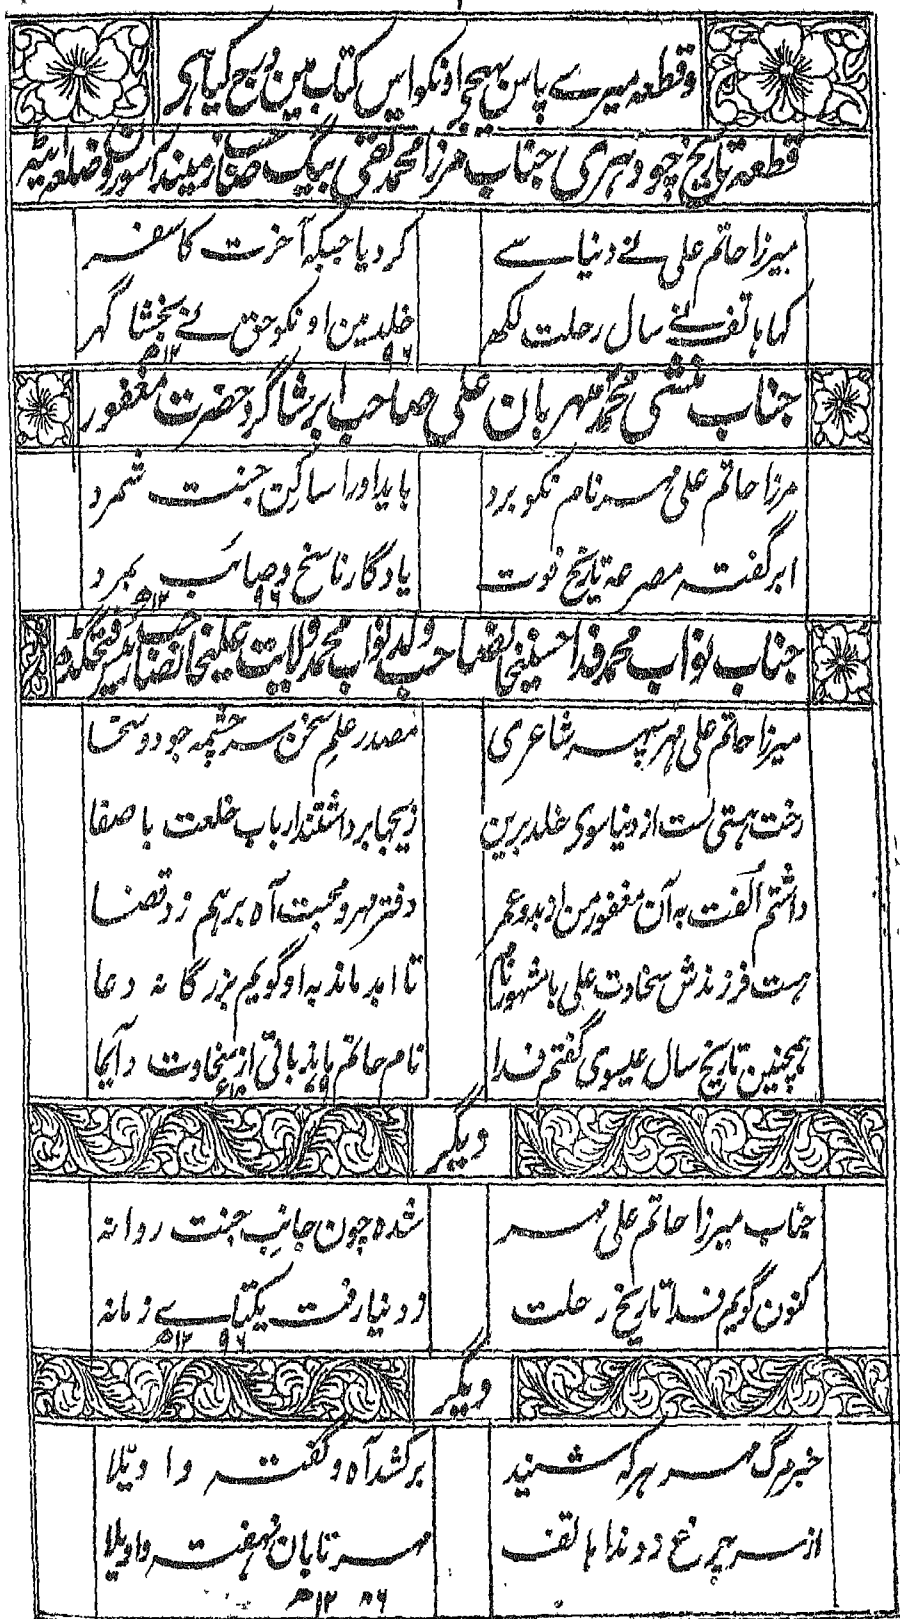 وقطعہ میرے پاس بھیجے اونکو اس کتاب مین درج کیا ہی
قطعہ تاریخ چودہری جناب مرزا محمد تقی بیگ صاحب زمیندار سورون ضلع ایٹہ
میرزا حاتم علی نے دنیا سے کر دیا جبکہ آخرت کا سفر
کہا ہاتف نے سال رحلت لکھ خلد مین اونکو حق نے بخشا گہر
۱۲۹۶ھ
جناب منشی محمد مہربان علی صاحب ابر شاگرد حضرت مغفور
مرزا حاتم علی مہر نام نکو برد باید او را ساکن جنت شمرد
ابر گفتہ مصرعہ تاریخ فوت یادگار ناسخ و صائب بمرد
۱۲۹۶ھ
جناب نواب محمد فدا حسینخانصاحب ولد نواب محمد ولایت علیخانصاحب رئیس فتحگڈہ
میرزا حاتم علی مہر سپہر شاعری مصدر علم سخن سرچشمہ جود و سخا
رخت ہستی بست از دنیا سوی خلد برین زیجہا برداشتند ارباب خلعت با صفا
داشتم الفت بہ آن مغفور من از بدو عمر دفتر مہر و محبت آہ برہم زد قضا
ہست فرزندش سخاوت علی با مشہور نام تا ابد ماند بہ او گویم بزرگانہ دعا
ہمچنین تاریخ سال عیسوی گفتم فدا نام حاتم باد باقی از سخاوت دایما
دیگر
جناب میرزا حاتم علی مہر شدہ چون جانب جنت روانہ
کنون گویم فدا تاریخ رحلت ز دنیا رفت یکتاے زمانہ
۱۲۹۶ھ
دیگر
خبر مرگ مہر ہر کہ شنید بر کشد آہ و گفت وا ویلا
از سر چرخ زد ندا ہاتف مہر تابان نہفت واویلا
۱۲۹۶ھ